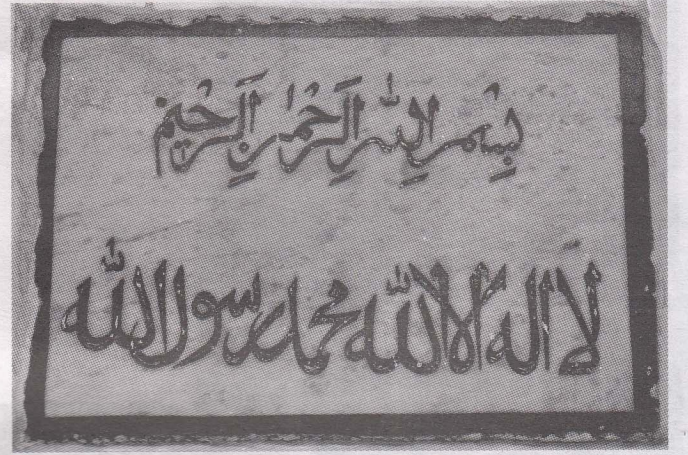 بسم الله الرحمن الرحيم
لا اله الا الله محمد رسول الله